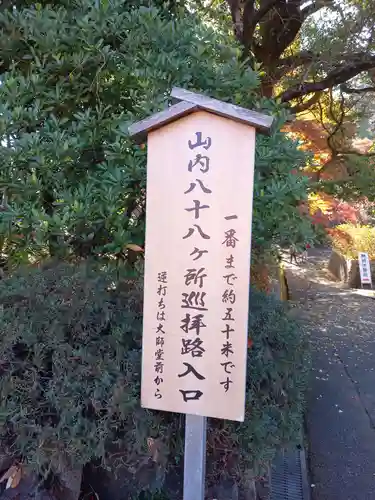 山内八十八ヶ所巡拝路入口
一番まで約五十米です
逆打ちは大師堂前から